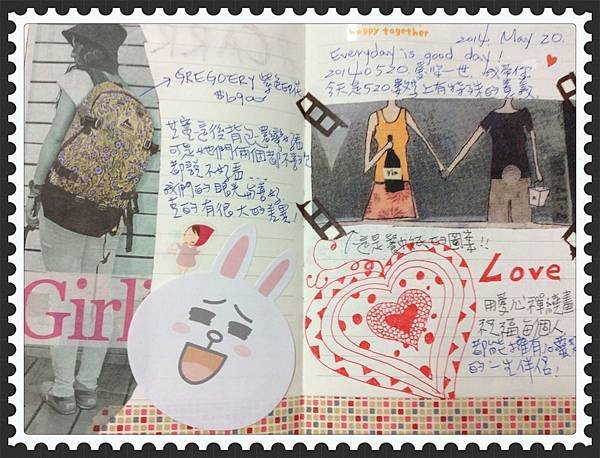 GREGOERY 紫色印花
$690
艾草這後背包最愛的一隻
可是她們倆個都不喜歡
都說不好看...
我們的眼光喜好
真的有很大的差異!
Girli
happy together
2014. May 20.
Everyday is good day!
20140520 愛你一世,
今天是520 數字上有特殊的意義
Yin
這是 紙的圖案!!
Love
用愛心禪繞畫
祝福每個人
都能擁有心愛
的一生伴侶!